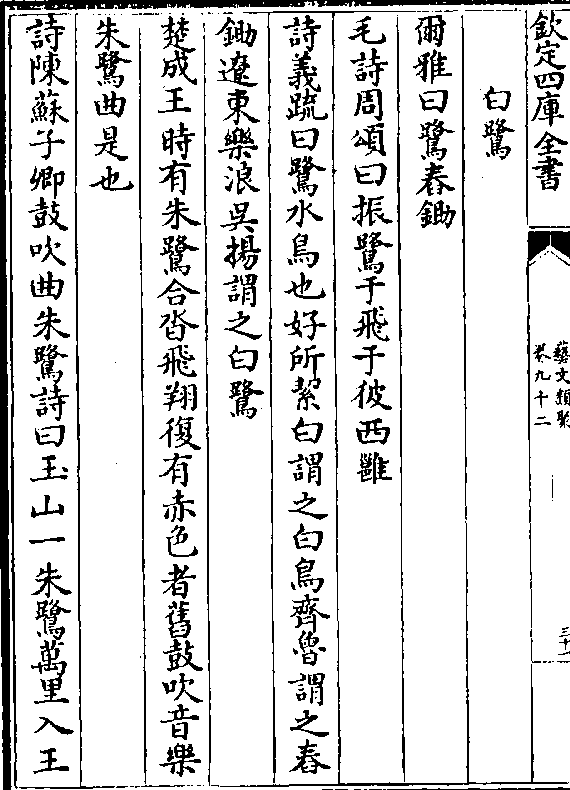 欽定四庫全書
藝文類聚
卷九十二
三十一
白鷺
爾雅曰鷺舂鋤
毛詩周頌曰振鷺于飛于彼西雝
詩義疏曰鷺水鳥也好所絜白謂之白鳥齊魯謂之舂
鋤遼東樂浪吳揚謂之白鷺
楚成王時有朱鷺合沓飛翔復有赤色者舊鼓吹音樂
朱鷺曲是也
詩陳蘇子卿鼓吹曲朱鷺詩曰玉山一朱鷺萬里入王